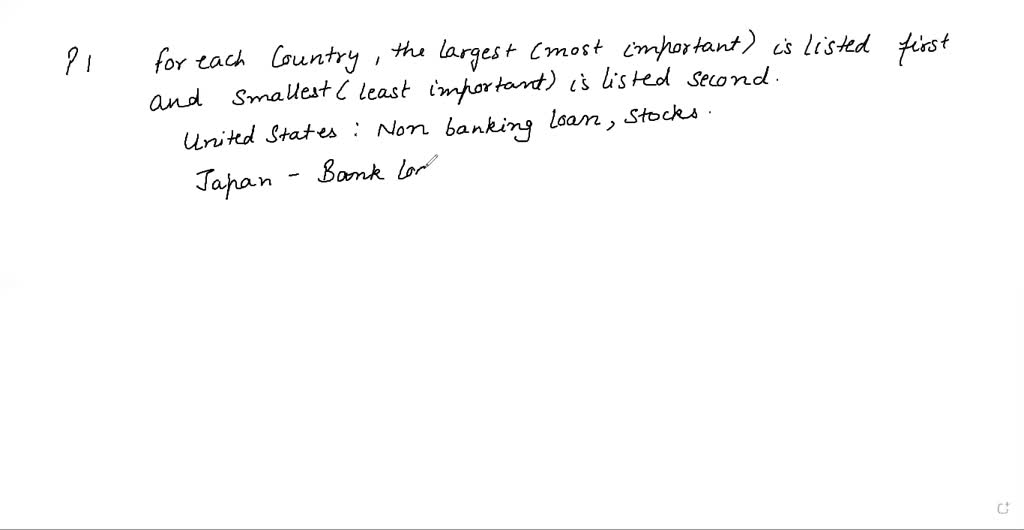 P1 for each Country, the largest (most important) is listed first
and smallest (least important) is listed second.
United States : Non banking loan, Stocks.
Japan - Bank